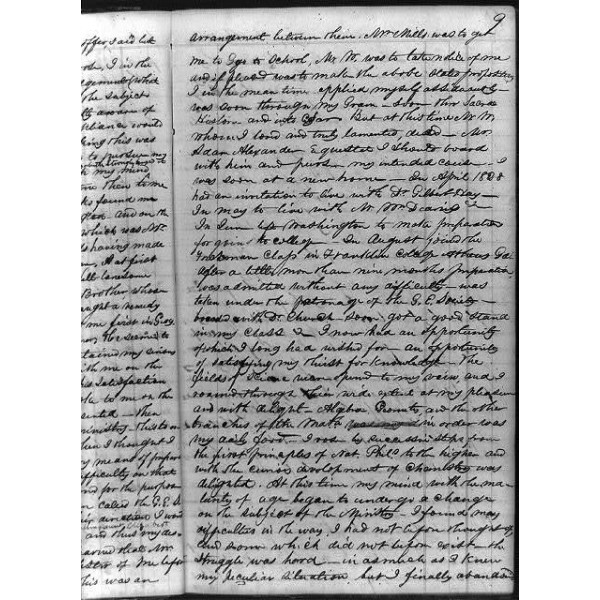 9
arrangement between them. Mr Mills was to get
me to go to School, Mr. W. was to take notice of me
and if pleased was to make the above stated proposition
I in the mean time applied myself assiduously
was soon through my Gram. soon thro Sacra
Historia and into Cesar But at this time Mr. W.
whom I loved and truly lamented, died — Mr.
Adam Alexander requested I should board
with him and pursue my intended course. I
was soon at a new home — In April 1828
had an invitation to live with Dr. Gilbert Hay
In may to live with Mr. Wm Dearing
In June left Washington to make preparation
for going to college — In August joined the
Freshman Class in Franklin College Athens Ga
after a little more than nine months preparation
was admitted without any difficulty — was
taken under the patronage of the G. E. Society —
board with Dr. Church soon got a good stand
in my class & I now had an opportunity
of which I long had wished for — an opportunity
of satisfying my thirst for knowledge — The
fields of Science were opened to my view and I
roamed through their wide extent at my pleasure
and with delight Algebra Geometry and the other
branches of the Math in order was
my daily food. I rose by successive steps from
the first principles of Nat. Philo. to the higher and
with the curious development of Chemistry was
delighted. At this time my mind with the ma-
turity of age began to undergo a change
on the subject of the Ministry I found many
difficulties in the way, I had not before thought of
and some which did not before exist — the
struggle was hard — in as much as I knew
my peculiar situation but I finally abandoned
offer said let
I in the
the subject
aware of
would
this was
to pursue my
my mind
time
found me
and on the
which was Mr.
having made
At first
lonesome
Brother, whose
a ready
me first in Geog.
seemed to
my serious
with me on the
satisfaction
to me on the
then
ministry this too
when I thought I
my means of
difficulty on that
and for the purpose
called the G. E. S.
direction I was
and thus my des-
that Mr
of me before
This was an